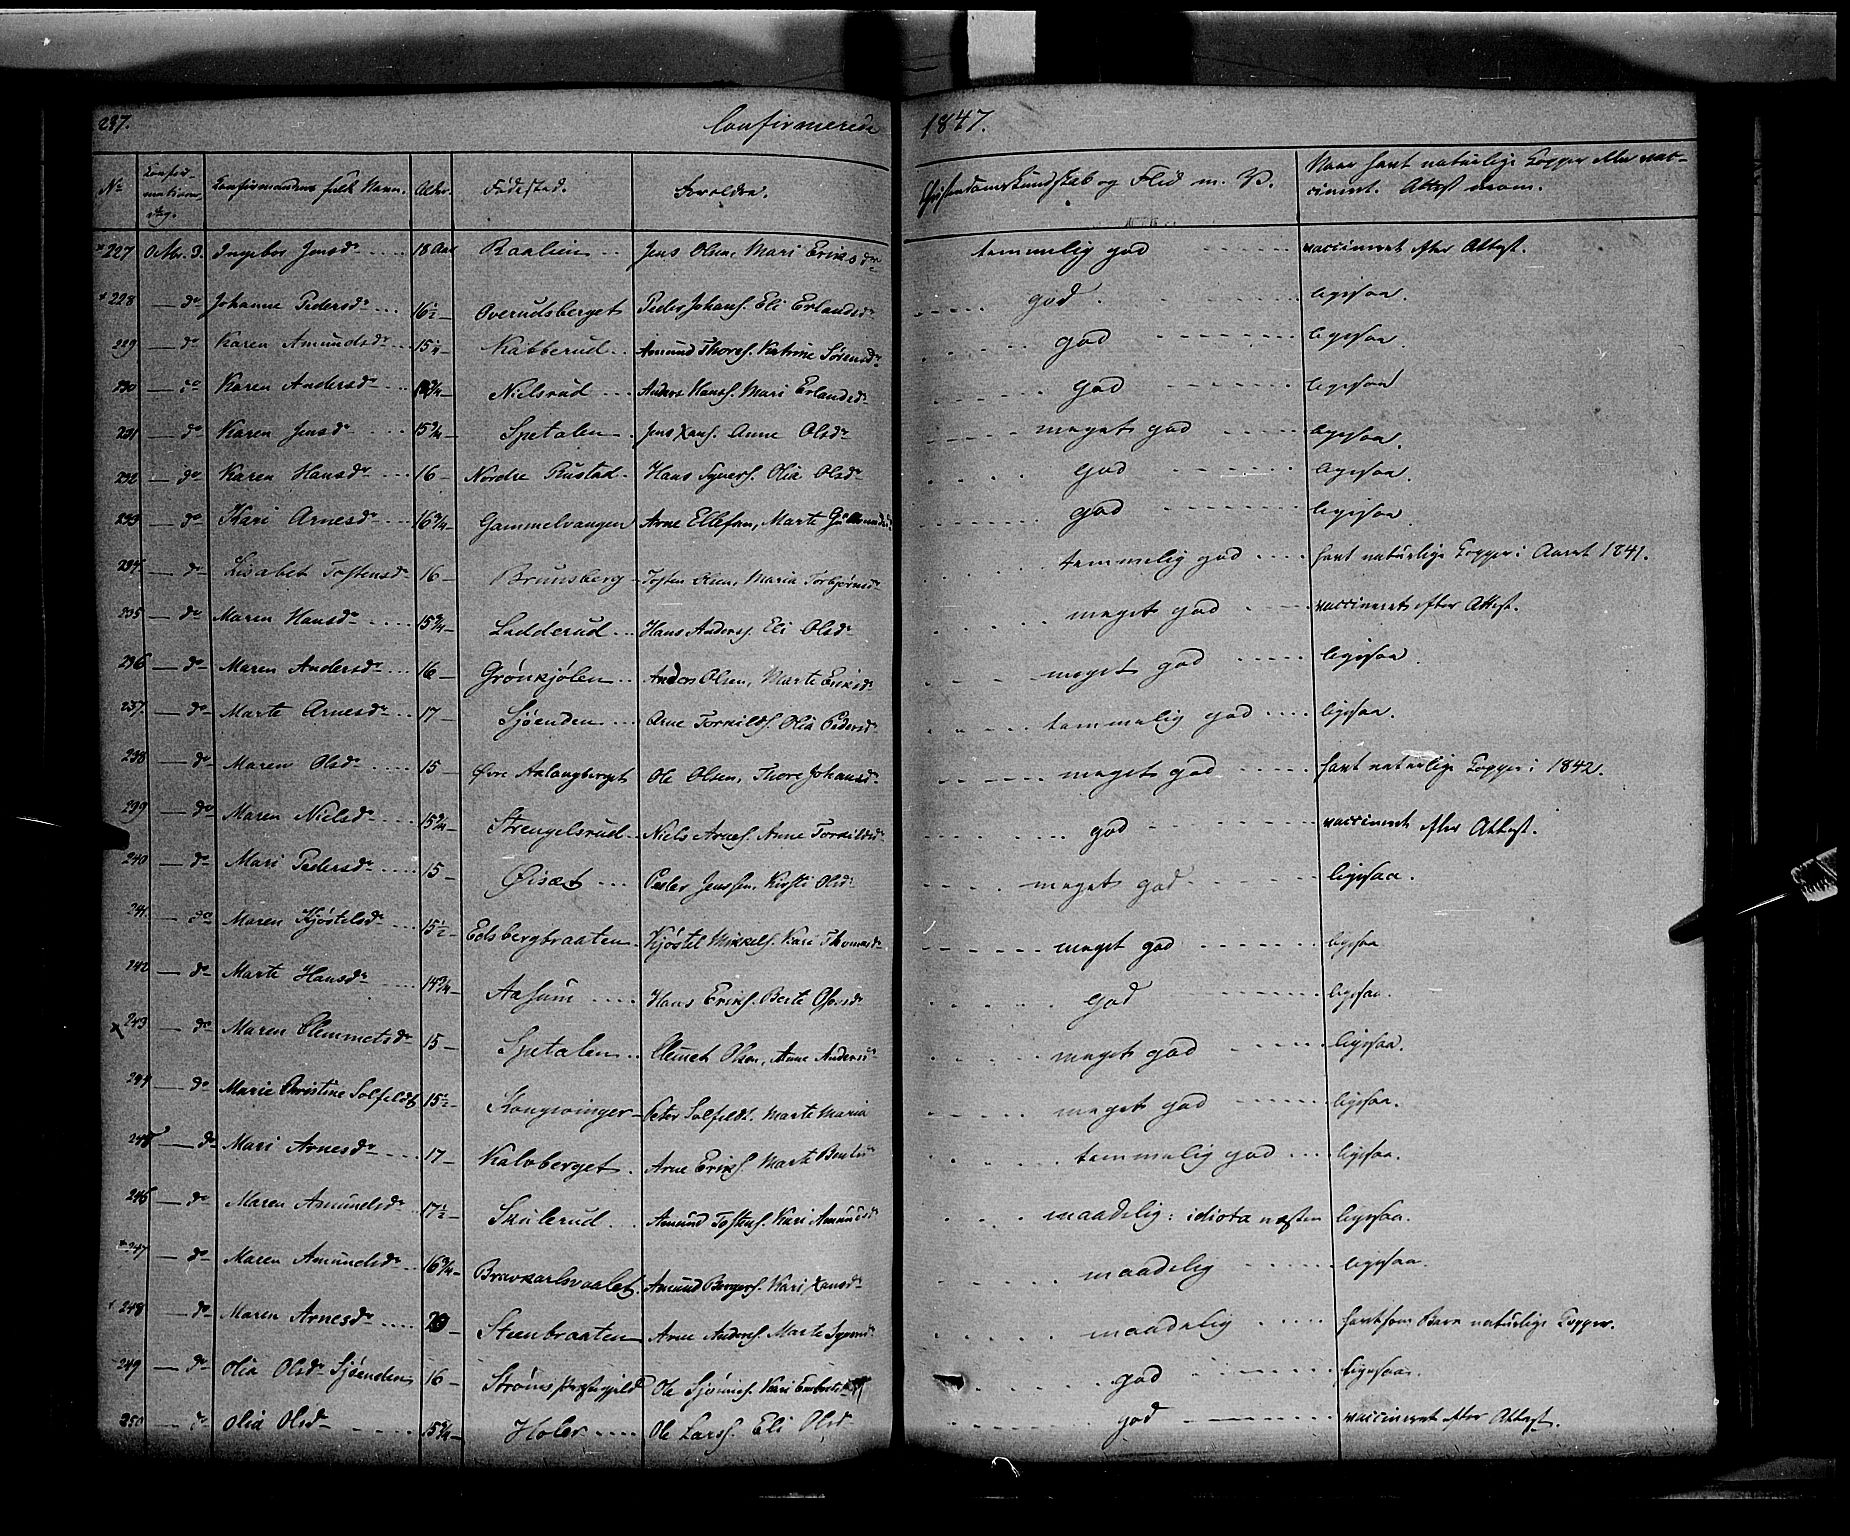 237. Confirmerede 1847.
No Confirmations Dag. Confirmandens fulde Navn. Alder. Fødested. Forældre. Christendomskundskab og Flid m. V. Naar havt naturlige Kopper eller vaccineret. Attest mom.
227 Octbr. 3. Ingebor Jensdr 18 Aar Raalien Jens Olsen, Mari Eriksdr temmelig god vaccineret efter Attest.
228 — do Johanne Pedersdr 16½ Overudsberget Peder Johans. Eli Erlandsdr god ligesaa.
229 — do Karen Amundsdr 15¼ Kabberud Amund Thores. Katrine Sørensdr god ligesaa.
230 — do Karen Andersdr Nielsrud Anders Hans. Mari Erlandsdr god ligesaa
231 — do Karen Jensdr 15¾ Spetalen Jens Hans. Anne Olsdr meget god ligesaa.
232 — do Karen Hansdr 16 Nordre Rustad Hans Syvers. Olia Olsdr god ligesaa.
233 — do Kari Arnesdr 16¾ Gammelvangen Arne Ellefsen, Marte god ligesaa.
234 — do Lisabet Tostensdr 16 Brunsberg Tosten Olsen, Maria Torbjørnsdr temmelig god havt naturlige Kopper i Aaret 1841.
235 — do Maren Hansdr 15¾ Ladderud Hans Anders. Eli Olsdr meget god vaccineret efter Attest.
236 — do Maren Andersdr 16 Grønkjølen Anders Olsen, Marte Eriksdr meget god ligesaa.
237. — do Marte Arnesdr 17 Sjøenden Arne Torkilds. Olia Pedersdr temmelig god ligesaa.
238 — do Maren Olsdr 15 Øvre Aslangberget Ole Olsen, Thore Johansdr meget god havt naturlige Kopper i 1842.
239 — do Maren Nielsdr 15¾ Strengelsrud Niels Arnes. Anne Torkildsdr god vaccineret efter Attest.
240 — do Mari Pedersdr 15 Øiset Peder Jenssen, Kirsti Olsdr meget god ligesaa.
241. — do Maren Kjøstelsdr 15½ Edsbergbraaten Kjøstel Mikkels. Kari Thomasdr meget god ligesaa
242 — do Marte Hansdr 14¾ Aasum Hans Eriks. Berte Olsdr god ligesaa.
243 — do Maren Clemmetsdr 15 Spetalen Clemet Olsen, Anne Andersdr meget god ligesaa.
244 — do Marie Christine Solfeldt 15½ Kongsvinger Peter Solfeldt. Marte Maria meget god ligesaa.
245 — do Mari Arnesdr 17 Kalvberget Arne Eriks. Marte temmelig god ligesaa.
246 — do Maren Amundsdr 17½ Skulerud Amund Tostens. Kari Amundsdr maadelig: idiota næsten ligesaa.
247 — do Maren Amundsdr 16¾ Amund Bergers. Kari Hansdr maadelig ligesaa.
248 — do Maren Arnesdr 20 Steenbraaten Arne Anders. Marte Syversdr maadelig havt som Barn naturlige Kopper.
249 — do Olia Olsdr Sjøenden 16 Strøms Præstegjeld Ole Sjønnes. Kari Embretsdr god ligesaa.
250 — do Olia Olsdr 15¾ Holer Ole Lars. Eli Olsdr god vaccineret efter Attest.